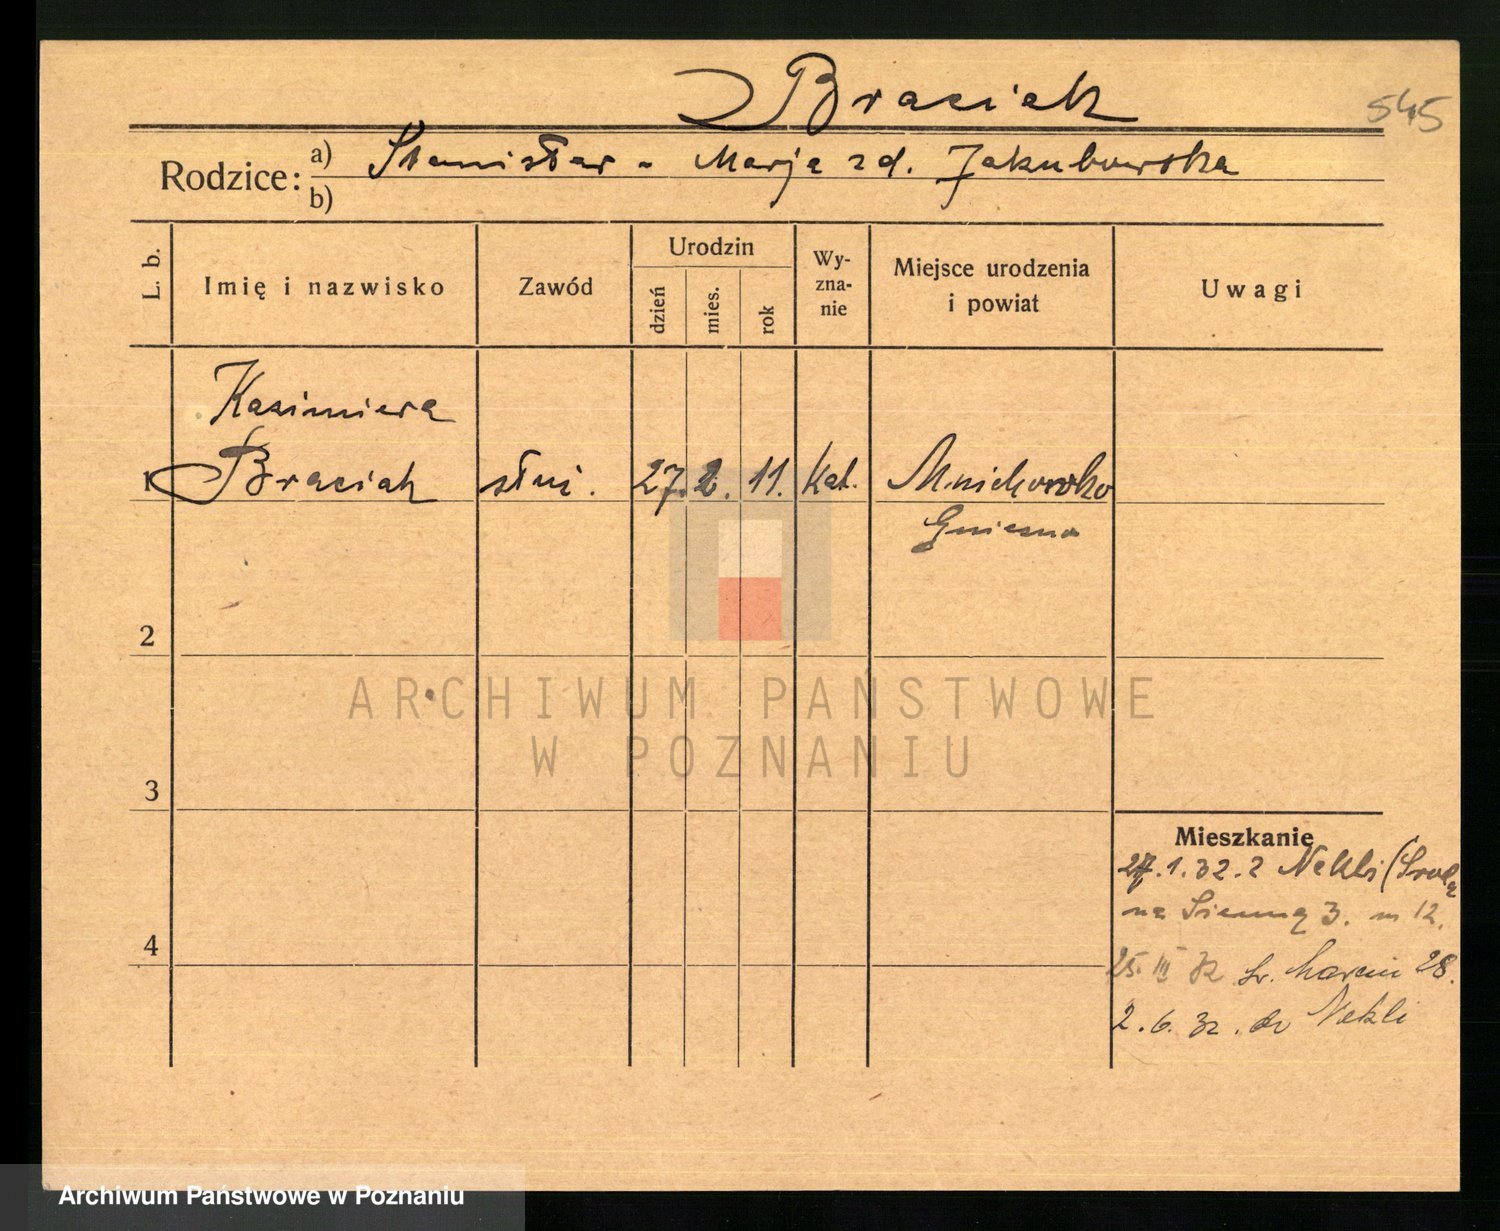 Braciak
545
Rodzice:
a) Stanisław - Marja zd. Jakubowska
b)
L. b.
Imię i nazwisko
Zawód
Urodzin
dzień
mies.
rok
Wy-
zna-
nie
Miejsce urodzenia
i powiat
Uwagi
Kazimiera
1 Braciak służ. 27. 2. 11. kat. Mnichowsko
Gniezno
2
3
4
ARCHIWUM PAŃSTWOWE
W POZNANIU
Mieszkanie
27.1.32. z Nekli (Środa
na Sienną 3. m 12.
25. III 32 św. Marcin 28.
2.6.32. do Nekli
Archiwum Państwowe w Poznaniu